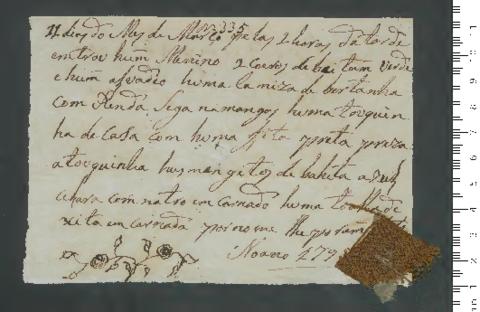 11 dias do Mes de Março pelas 2 horas da tarde
entrou hum Menino 2 Coeros de baitam verde
e hum huma Camiza de bertanha
com Renda Sega na mangos, huma touquin
ha de Casa com huma fita preta preza
a touquinha huns mangitos de baheta azul
Clara com nastro emcarnado huma toalha de
xita emcarnada por nome lhe poram
No ano 179